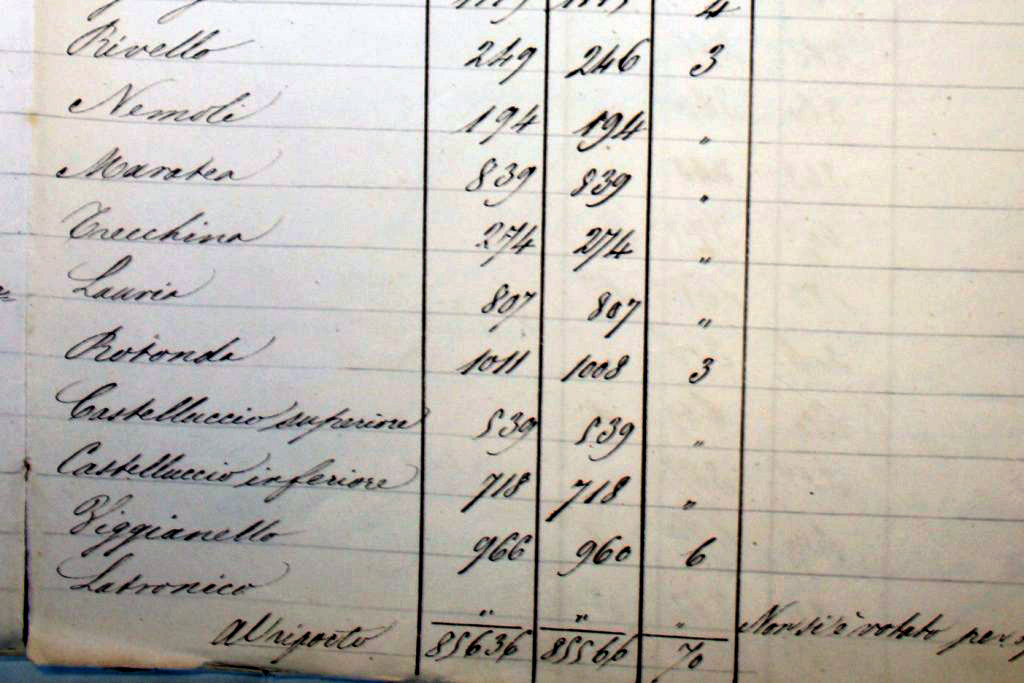 Rivello 249 246 3
Nemoli 194 194 "
Maratea 839 839 "
Trecchina 274 274 "
Lauria 807 807 "
Rotonda 1011 1008 3
Castelluccio superiore 539 539 "
Castelluccio inferiore 718 718 "
Viggianello 966 960 6
Latronico " " " Non si è votato per
Al riporto 85636 85566 70